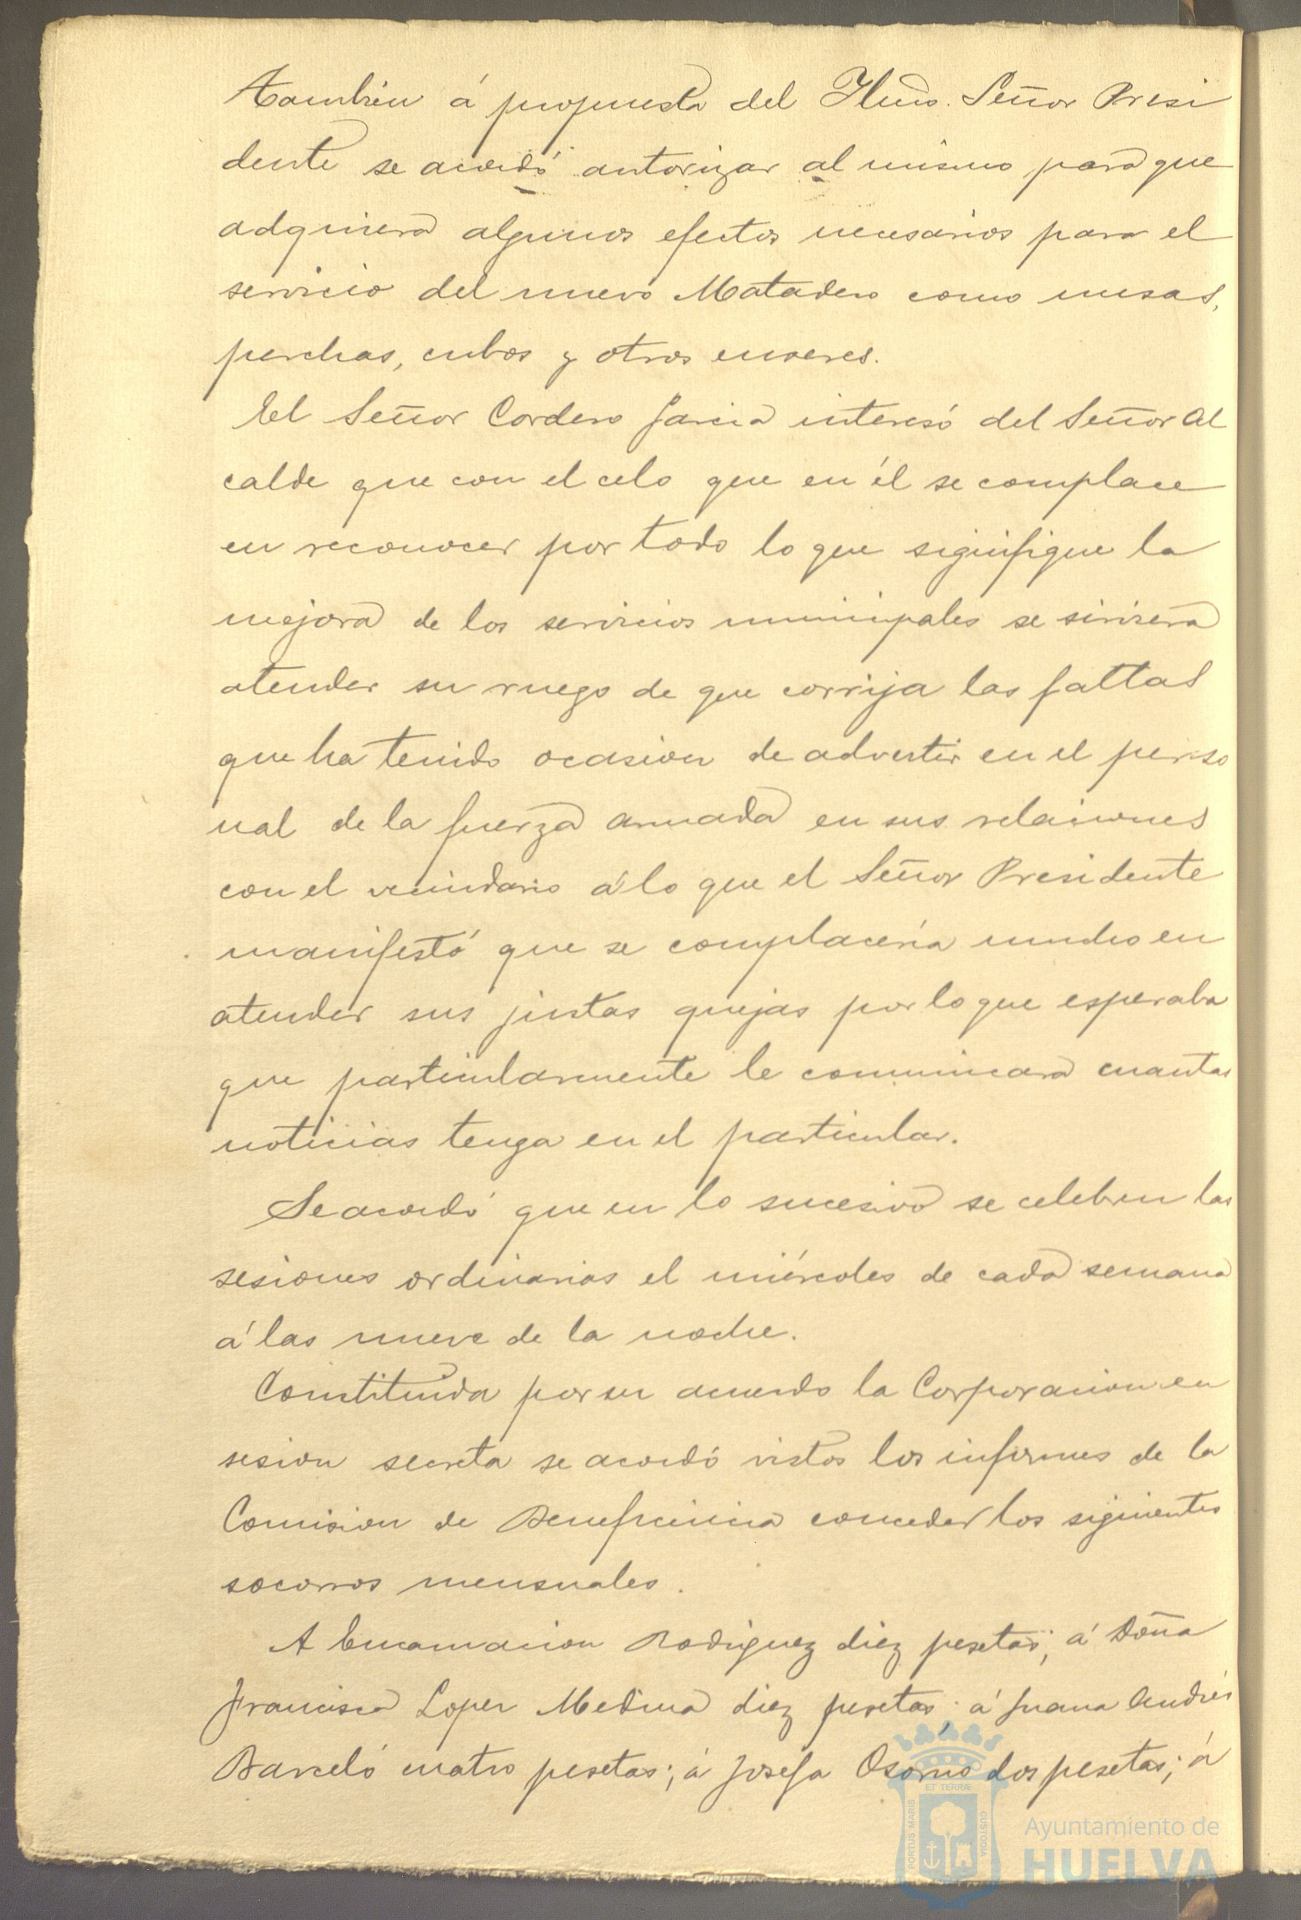 Tambien á propuesta del Ilmo. Señor Presi
dente se acordó autorizar al mismo para que
adquiera algunos efectos necesarios para el
servicio del nuevo Matadero como mesas,
perchas, cubos y otros enseres.
El Señor Cordero Garcia interesó del Señor Al
calde que con el celo que en él se complace
en reconocer por todo lo que signifique la
mejora de los servicios municipales se sirviera
atender su ruego de que corrija las faltas
que ha tenido ocasion de advertir en el perso
nal de la fuerza armada en sus relaciones
con el vecindario á lo que el Señor Presidente
manifestó que se complacería mucho en
atender sus justas quejas por lo que esperaba
que particularmente le comunicara cuantas
noticias tenga en el particular.
Se acordó que en lo sucesivo se celebren las
sesiones ordinarias el miércoles de cada semana
á las nueve de la noche.
Constituida por su acuerdo la Corporacion en
sesion secreta se acordó vistos los informes de la
Comision de Beneficencia conceder los siguientes
socorros mensuales.
A Encarnacion Rodriguez diez pesetas; á Doña
Francisca Lopez Medina diez pesetas; á Juana Andrés
Barceló cuatro pesetas; á Josefa Osorno dos pesetas; á
PORTUS MARIS ET TERRÆ CUSTODIA
Ayuntamiento de
HUELVA